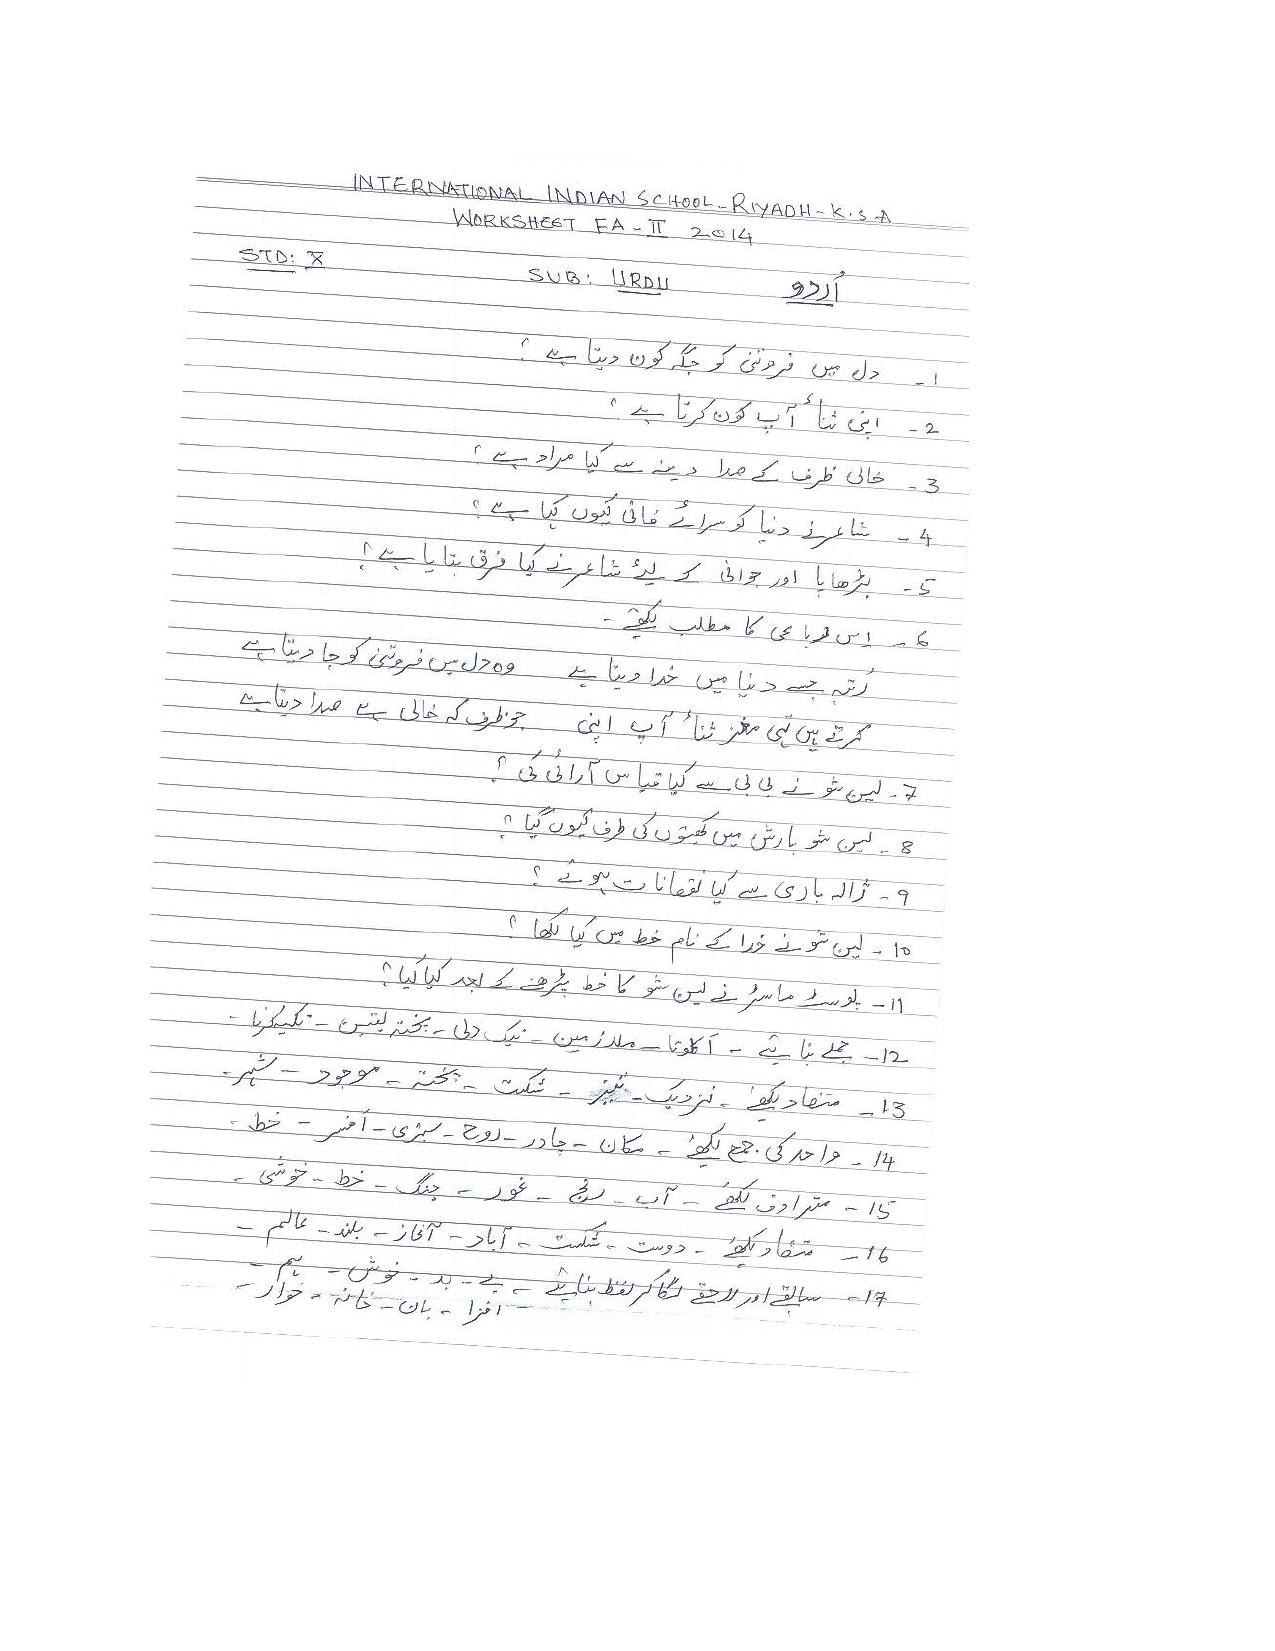 INTERNATIONAL INDIAN SCHOOL-RIYADH-K.S.A
WORKSHEET FA-II 2014
STD: X SUB: URDU اُردو
1- دل میں فروتنی کو جگہ کون دیتا ہے؟
2- اپنی ثناءُ آپ کون کرتا ہے؟
3- خالی ظرف کے صدا دینے سے کیا مراد ہے؟
4- شاعر نے دنیا کو سرائے فانی کیوں کہا ہے؟
5- بڑھاپا اور جوانی کے لیئے شاعر نے کیا فرق بتایا ہے؟
6- اِس رباعی کا مطلب لکھئے -
رُتبہ جسے دنیا میں خدا دیتا ہے وہ دل میں فروتنی کو جا دیتا ہے
کرتے ہیں تہی مغز ثناءُ آپ اپنی جو ظرف کہ خالی ہے صدا دیتا ہے
7- لین شو نے بی بی سے کیا قیاس آرائی کی؟
8- لین شو بارش میں کھیتوں کی طرف کیوں گیا؟
9- ژالہ باری سے کیا نقصانات ہوئے؟
10- لین شو نے خدا کے نام خط میں کیا لکھا؟
11- پوسٹ ماسٹر نے لین شو کا خط پڑھنے کے بعد کیا کیا؟
12- جملے بنائیے - اکلوتا - ملازمین - نیک دلی - پختہ یقین - تکیہ کرنا -
13- متضاد لکھئے - نزدیک - - شکست - پختہ - موجود - شہر -
14- واحد کی جمع لکھئے - مکان - چادر - روح - سبزی - افسر - خط -
15- مترادف لکھئے - آب - رنج - غور - جنگ - خط - خوشی -
16- متضاد لکھئے - دوست - شکست - آباد - آغاز - بلند - عالم -
17- سابقے اور لاحقے لگا کر لفظ بنائیے - بے - بد - خوش - ہم -
- افزا - بان - خانہ - خوار -